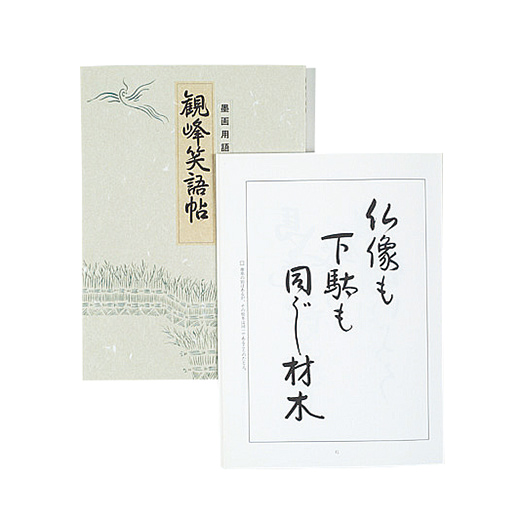 墨画用語
観峰笑語帖
仏像も
下駄も
同じ材木